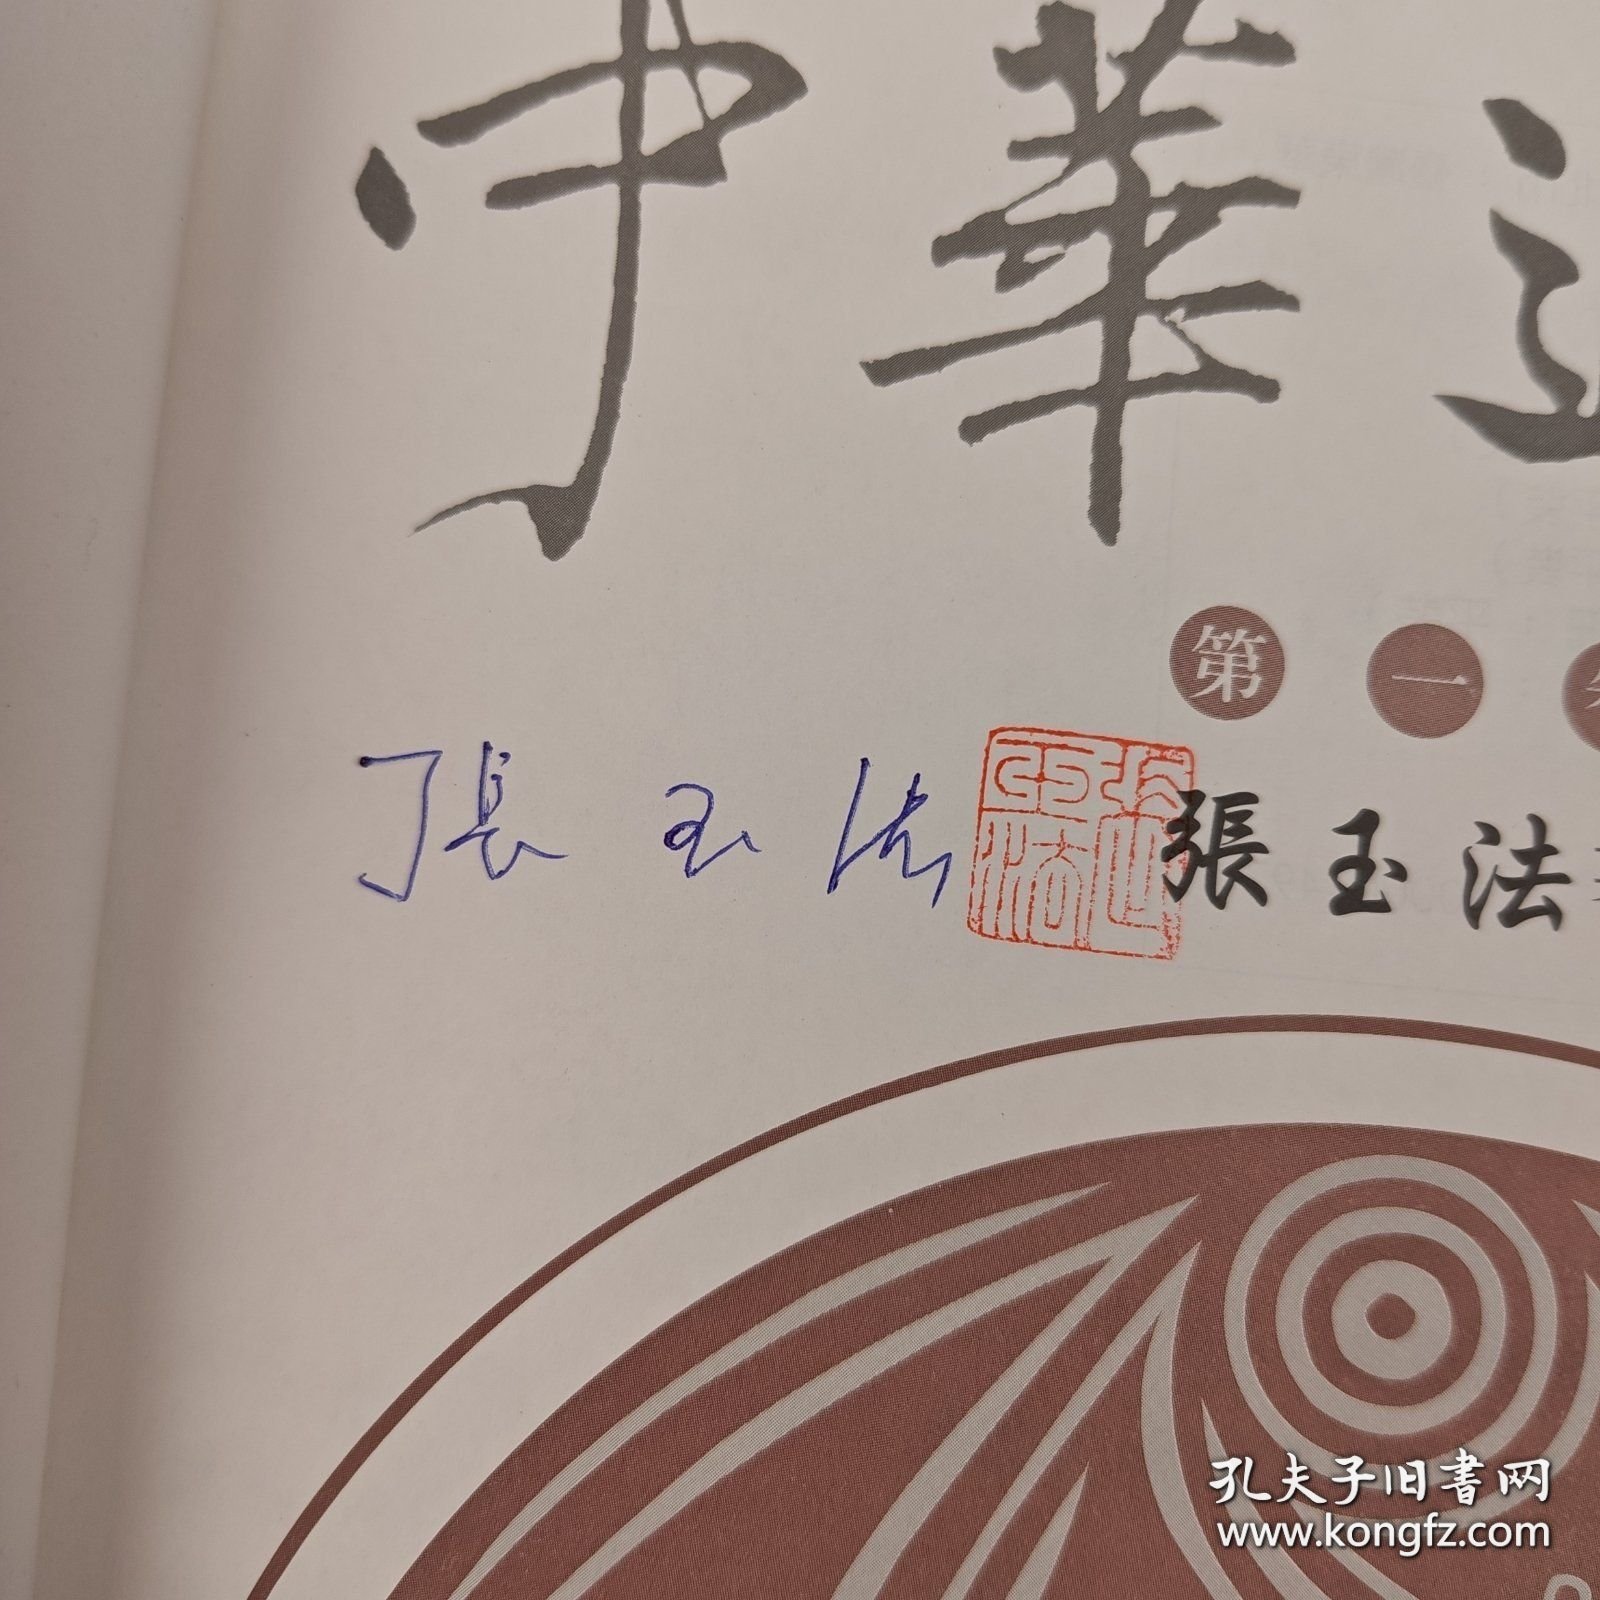 中華
第一
張玉法
張玉法
張玉法
孔夫子旧書网
www.kongfz.com